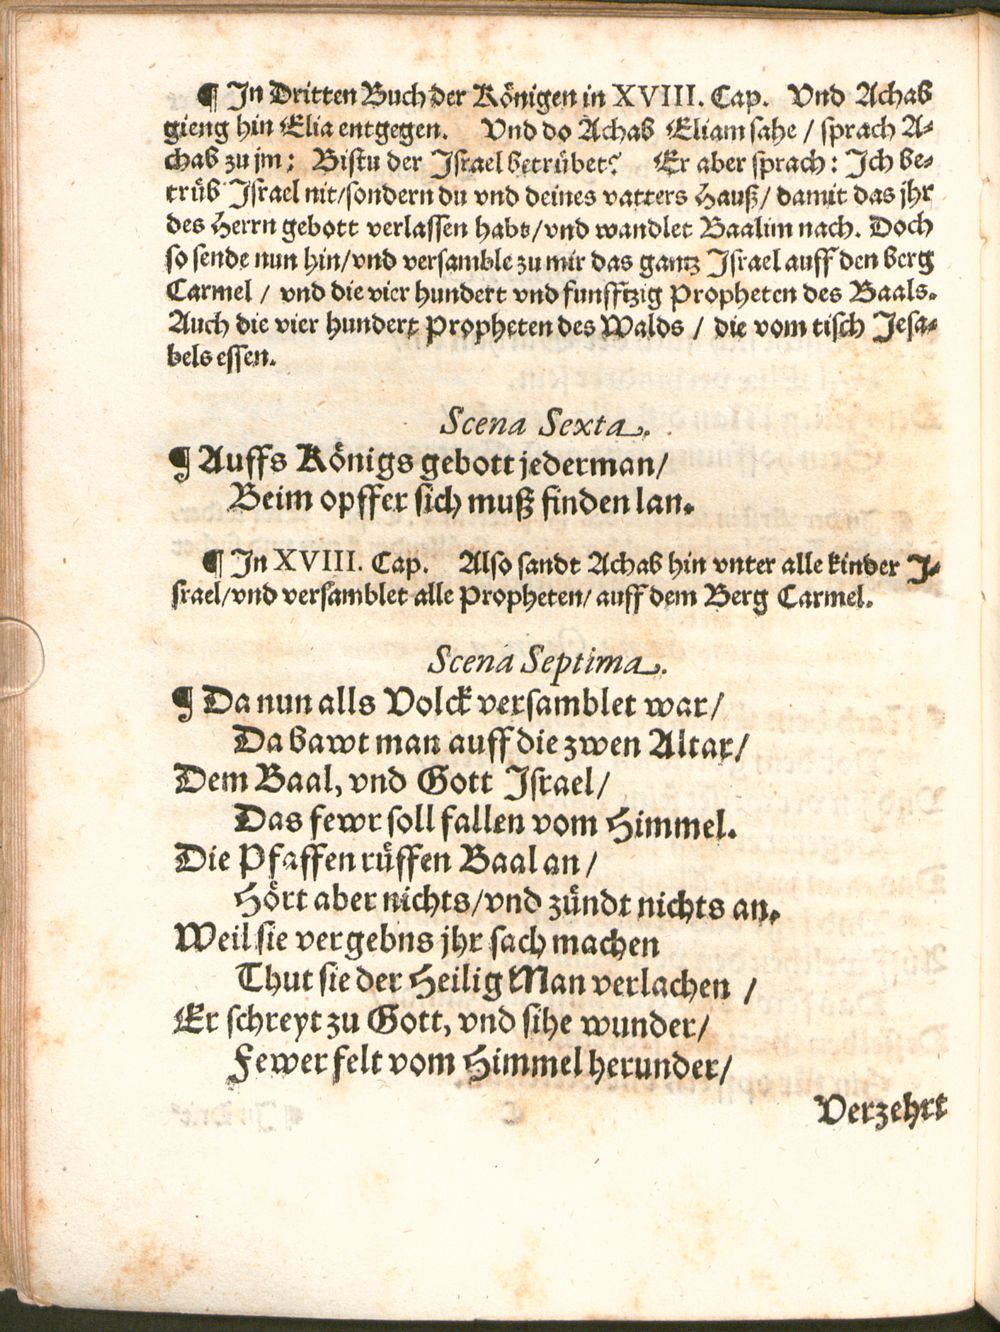 ¶ In Dritten Buch der Königen in XVIII. Cap. Vnd Achab
gieng hin Elia entgegen. Vnd do Achab Eliam sahe / sprach A-
chab zu jm: Bistu der Israel betrübet? Er aber sprach: Ich be-
trüb Israel nit/sondern du vnd deines vatters Hauß/ damit das jhr
des Herrn gebott verlassen habt/vnd wandlet Baalim nach. Doch
so sende nun hin/vnd versamble zu mir das gantz Israel auff den berg
Carmel / vnd die vier hundert vnd funfftzig Propheten des Baals.
Auch die vier hundert Propheten des Walds / die vom tisch Jesa-
bels essen.
Scena Sexta.
¶ Auffs Königs gebott jederman/
Beim opffer sich muß finden lan.
¶ In XVIII. Cap. Also sandt Achab hin vnter alle kinder I-
srael/vnd versamblet alle Propheten/ auff dem Berg Carmel.
Scena Septima.
¶ Da nun alls Volck versamblet war/
Da bawt man auff die zwen Altar/
Dem Baal, vnd Gott Israel/
Das fewr soll fallen vom Himmel.
Die Pfaffen rüffen Baal an/
Hört aber nichts/vnd zündt nichts an.
Weil sie vergebns jhr sach machen
Thut sie der Heilig Man verlachen /
Er schreyt zu Gott, vnd sihe wunder/
Fewer felt vom Himmel herunder/
Verzehrt